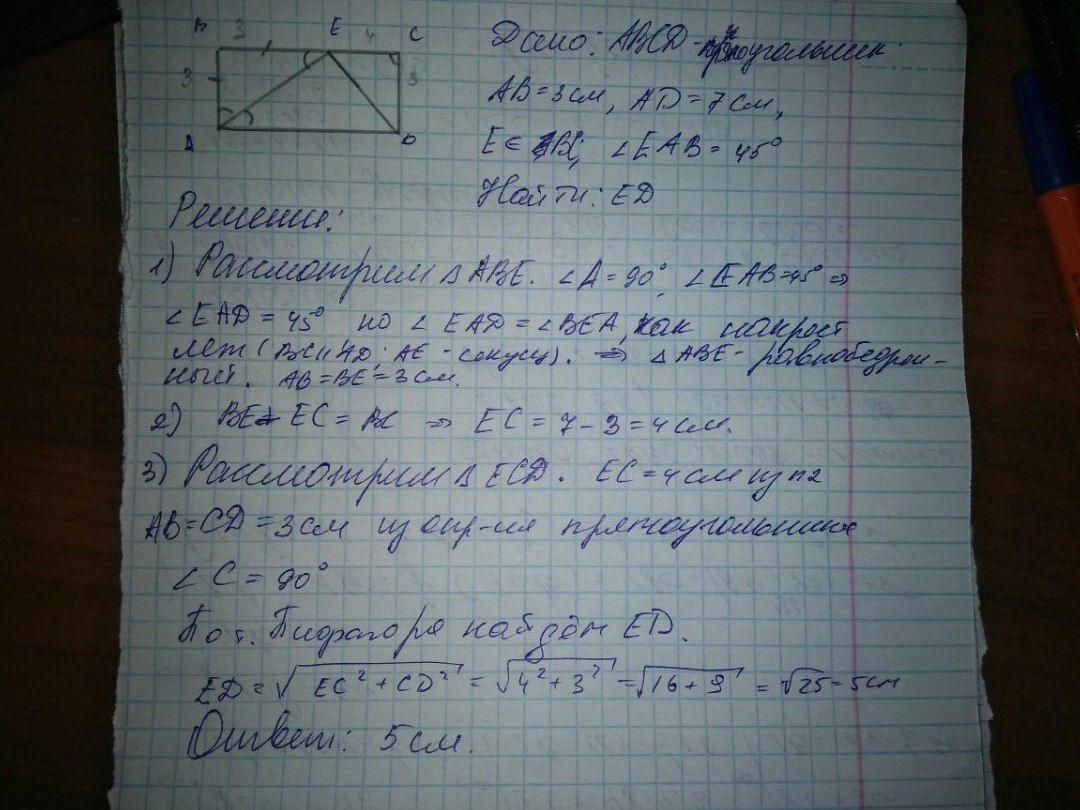 B 3 E 4 C
3 3
A D
Дано: ABCD - прямоугольник.
AB = 3 см, AD = 7 см,
E ∈ BC, ∠EAB = 45°
Найти: ED
Решение:
1) Рассмотрим △ ABE. ∠A = 90°, ∠EAB = 45° ⇒
∠EAD = 45° но ∠EAD = ∠BEA, как накрест
леж (BC || AD, AE - секущ). ⇒ △ ABE - равнобедрен-
ный. AB = BE = 3 см.
2) BE + EC = BC ⇒ EC = 7 - 3 = 4 см.
3) Рассмотрим △ ECD. EC = 4 см из п2
AB = CD = 3 см из опр-ия прямоугольника
∠C = 90°
По т. Пифагора найдём ED.
ED = √EC² + CD² = √4² + 3² = √16 + 9 = √25 = 5 см
Ответ: 5 см.